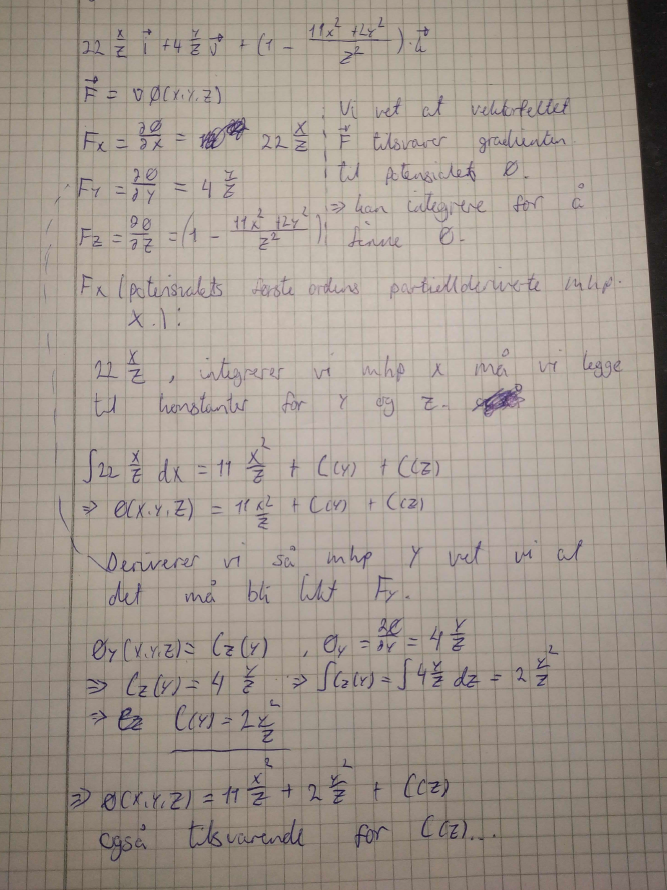 22 x/z i⃗ + 4 y/z v⃗ + (1 - (11x² + 2y²)/z²) · k⃗
F⃗ = ∇Ø(x,y,z)
Fx = ∂Ø/∂x = 22 x/z
Fy = ∂Ø/∂y = 4 y/z
Fz = ∂Ø/∂z = (1 - (11x² + 2y²)/z²)
Vi vet at vektorfeltet
F⃗ tilsvarer gradienten
til potensialet Ø.
⇒ kan integrere for å
finne Ø.
Fx (potensialets første ordens partiellderiverte mhp.
x.):
22 x/z , integrerer vi mhp x må vi legge
til konstanter for y og z.
∫22 x/z dx = 11 x²/z + C(y) + C(z)
⇒ Ø(x,y,z) = 11 x²/z + C(y) + C(z)
Deriverer vi så mhp y vet vi at
det må bli likt Fy.
Øy(x,y,z) = Cz(y) , Øy = ∂Ø/∂y = 4 y/z
⇒ Cz(y) = 4 y/z ⇒ ∫Cz(y) = ∫4 y/z dz = 2 y²/z
⇒ C(y) = 2 y²/z
⇒ Ø(x,y,z) = 11 x²/z + 2 y²/z + C(z)
også tilsvarende for C(z)...